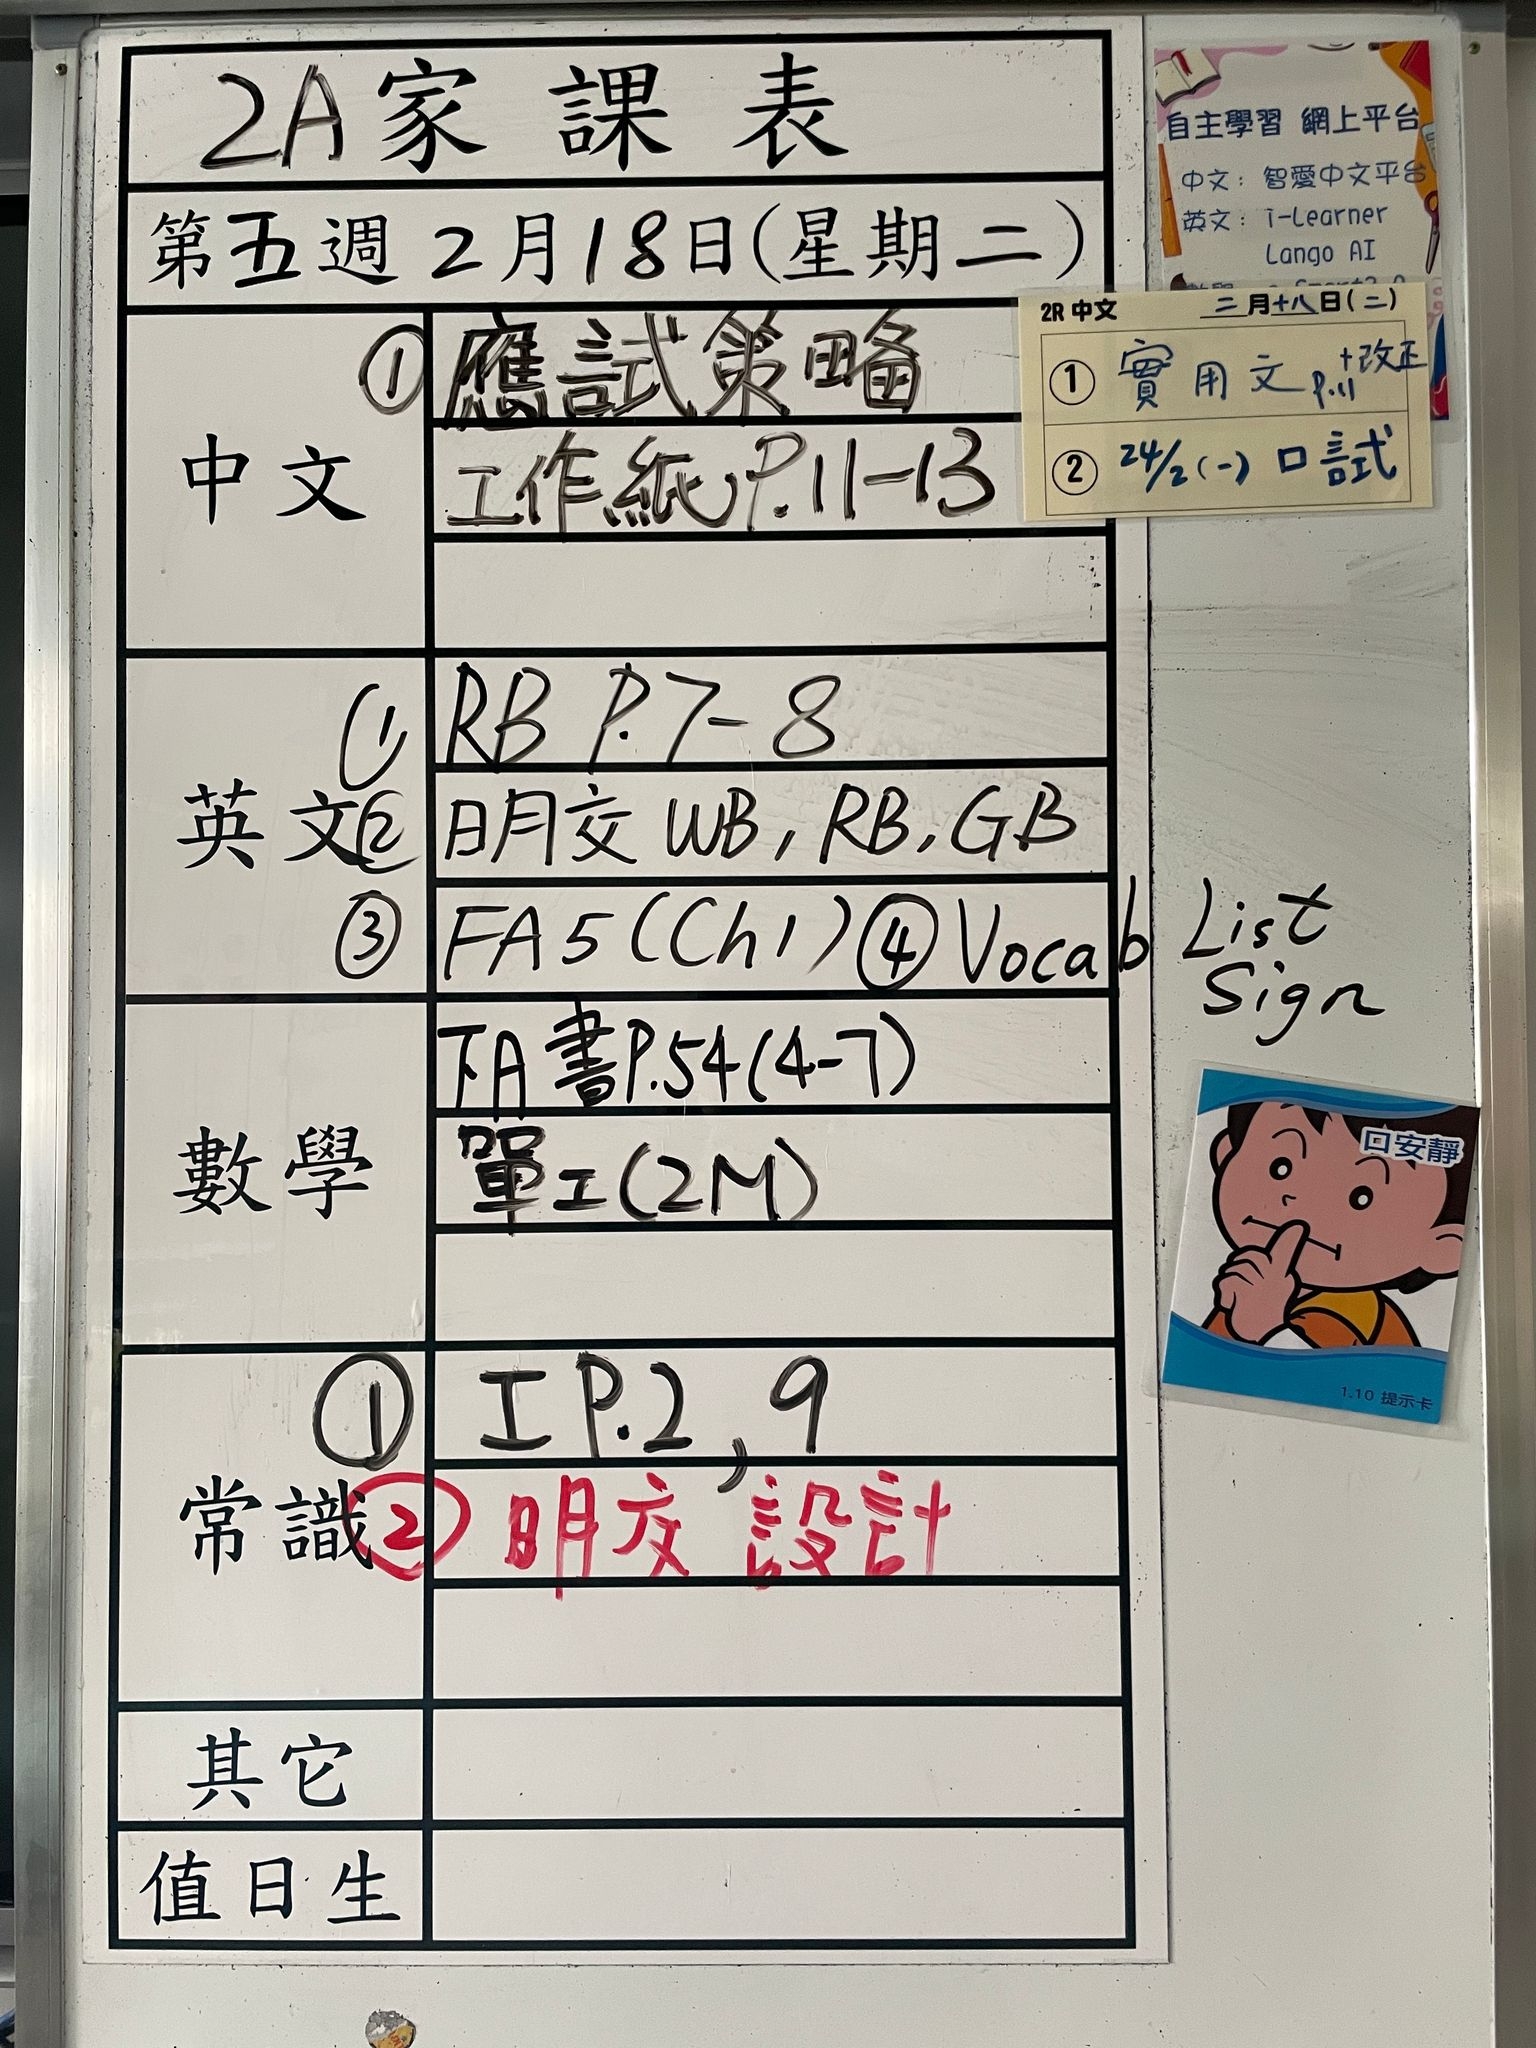 2A家課表
第五週2月18日(星期二)
中文
① 應試策略
工作紙P.11-13
英文
① RB P.7-8
② 明交 WB, RB, GB
③ FA5(Ch1) ④ Vocab List
Sign
數學
下A書P.54(4-7)
單工(2M)
常識
① 工P.2,9
② 明交 設計
其它
值日生
自主學習 網上平台
中文: 智愛中文平台
英文: i-Learner
Lango AI
2R 中文 二月十八日(二)
① 實用文P.11+改正
② 24/2(一) 口試
口安靜
1.10 提示卡